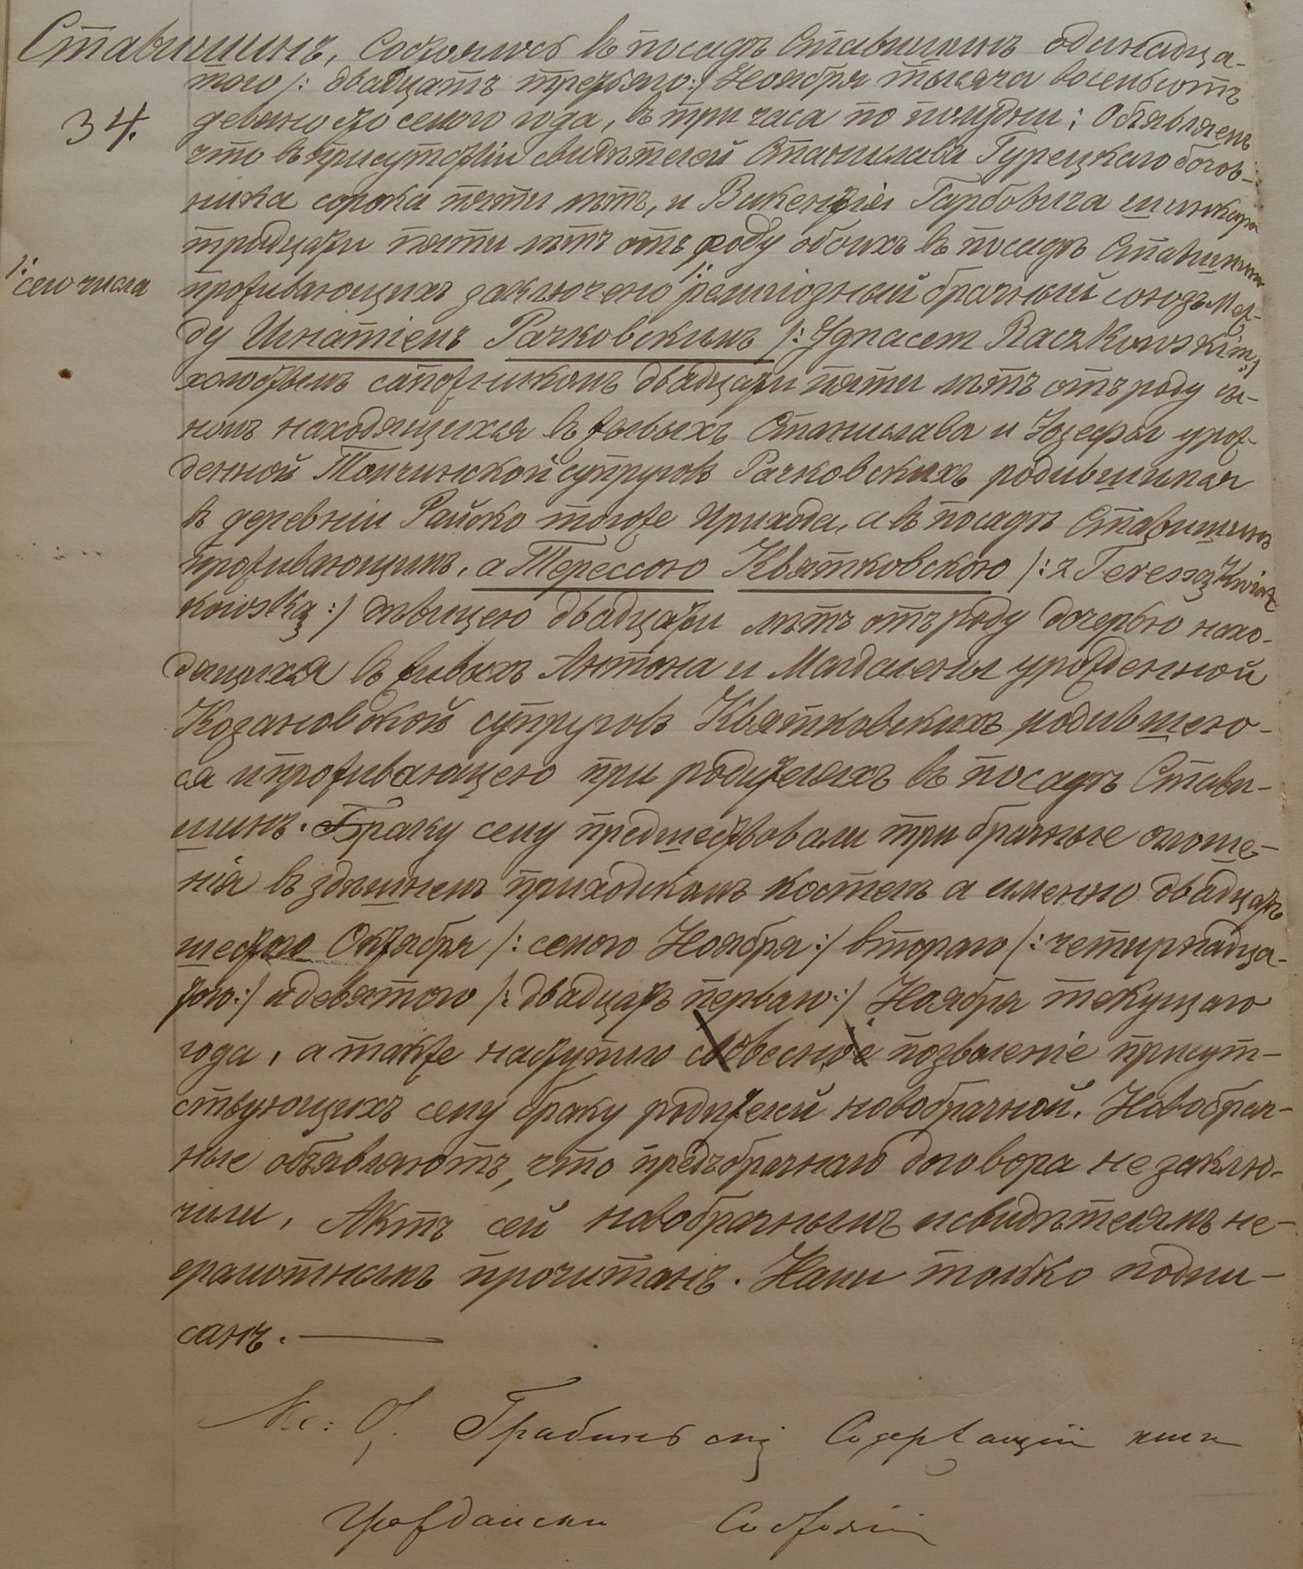 Ставишинъ, Состоялось въ посадѣ Ставишинѣ одинадца-
34.
таго /: двадцать третьяго :/ Ноября тысяча восемьсотъ
девяносто семого года, въ три часа по полудни; Объявляемъ
что въ присутствіи свидѣтелей Станислава Гурецкаго
ника сорока пяти лѣтъ, и Викентія Гарбовича
тридцати пяти лѣтъ отъ роду обоихъ въ посадѣ Ставишинѣ
/: сего числа
проживающихъ заключено /: религіозный брачный союзъ Меж-
ду Игнатіемъ Рачковскимъ /: Ignacem Raczkowskim :/
холостымъ сапожникомъ двадцати пяти лѣтъ отъ роду сы-
номъ находящихся въ живыхъ Станислава и Юзефы урож-
денной супруговъ Рачковскихъ родившимся
въ деревніи Райско тогоже прихода, а въ посадѣ Ставишинѣ
проживающимъ, а Терессою Квятковскою /: z Teressą Kwiat
kowską :/ дѣвицею двадцати лѣтъ отъ роду дочерью нахо-
дящихся въ живыхъ Антона и Магдалены урожденной
Козановской супруговъ Квятковскихъ родившею-
ся и проживающею при родителяхъ въ посадѣ Стави-
шинѣ. Браку сему предшествовали три брачные оглоше-
нія въ здѣшнемъ приходскомъ костелѣ а именно двадцать
шестого Октября /: семого Ноября :/ второго /: четирнадца-
того :/ и девятого /: двадцать первого :/ Ноября текущаго
года, а также наступило словесное позволеніе присут-
ствующихъ сему браку родителей новобрачной. Новобрач-
ные объявляютъ, что предъбрачнаго договора не заклю-
чили, Актъ сей новобрачнымъ и свидѣтелямъ не-
грамотнымъ прочитанъ. Нами только подпи-
санъ.
Кс: Грабинскій Содержащій книги
Гражданскаго Состоянія